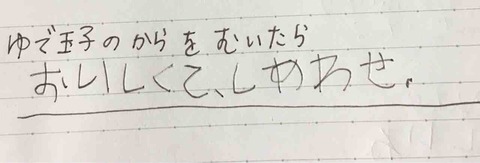 ゆで玉子のからをむいたら
おいしくて、しあわせ。